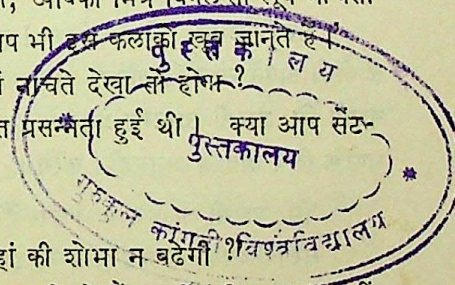 प भी इस कलाको खूब जानते हैं।
नाचते देखा तो होगा ?
त प्रसन्नता हुई थी। क्या आप सेंट-
हां की शोभा न बढेगी ?
पुस्तकालय
पुस्तकालय
गुरुकुल कांगड़ी विश्वविद्यालय